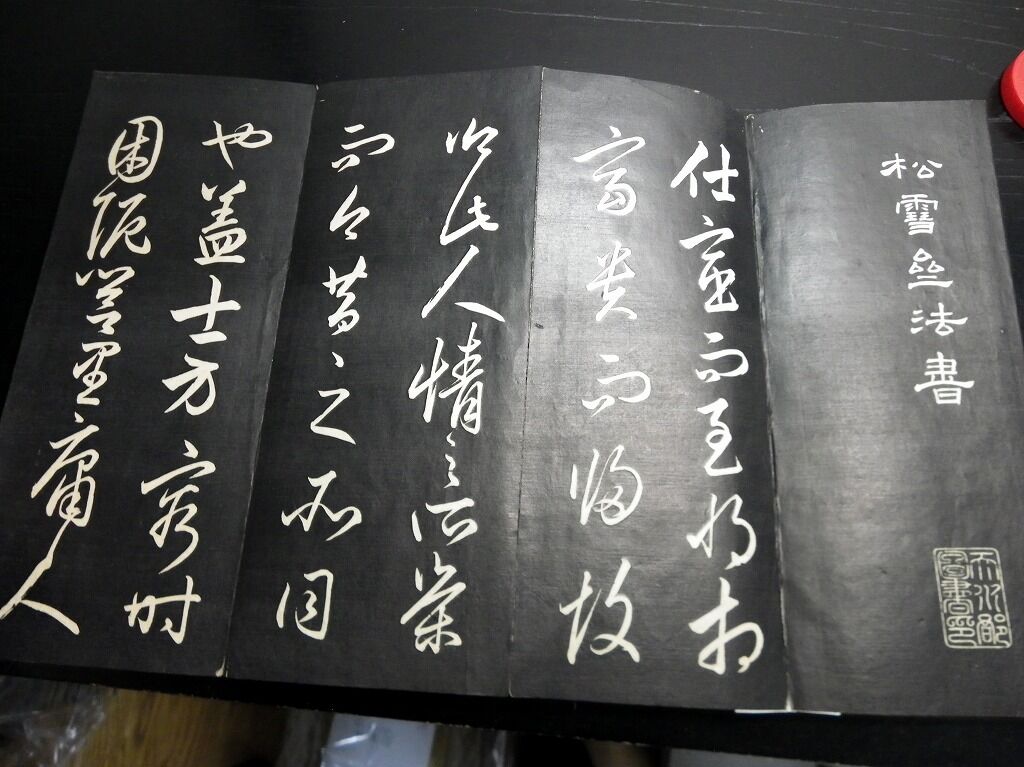 松雪亝法書
天水郡圖書印
仕宦而至將相
富貴而歸故
鄉此人情之所榮
而今昔之所同
也盖士方窮時
困阨閭里庸人